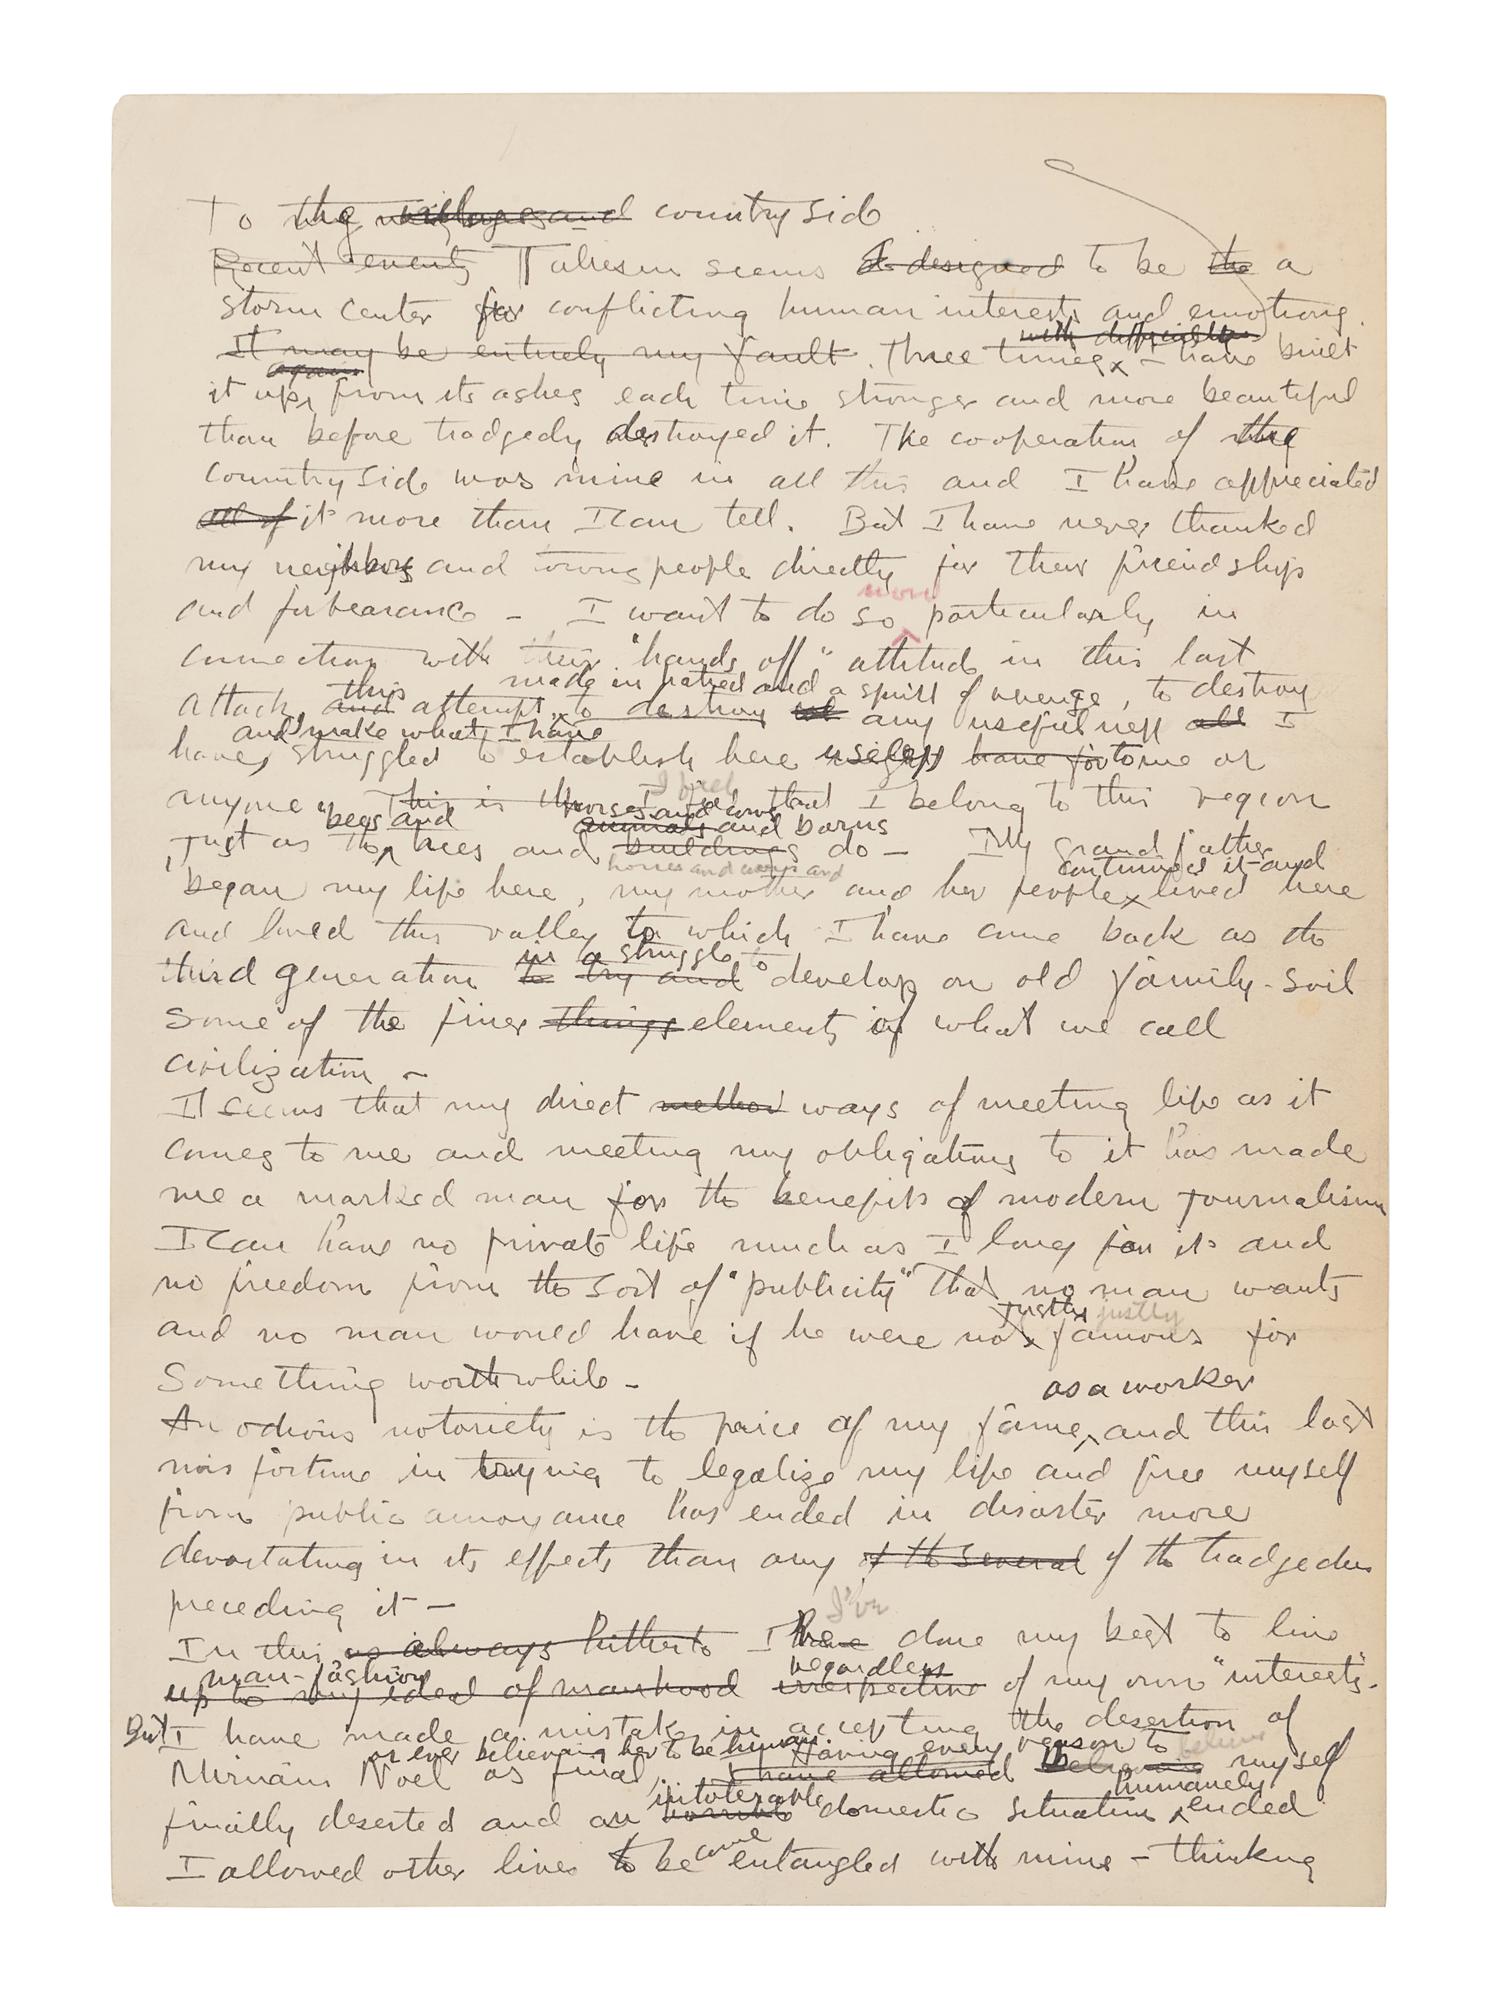 To the villages and countryside
Recent events Taliesin seems so designed to be the a
storm center for conflicting human interests and emotions.
with difficulty
It may be entirely my fault. Three times I have built
again
it up, from its ashes each time stronger and more beautiful
than before tradgedy destroyed it. The cooperation of the
countryside was mine in all this and I have appreciated
all of it more than I can tell. But I have never thanked
my neighbors and towns people directly for their friendship
more
and forbearance – I want to do so particularly in
connection with their "hands off" attitude in this last
this made in hatred and a spirit of revenge, to destroy
attack, and attempt to destroy any usefulness all I
and make what I have
have struggled to establish here useless have for to me or
I feel
anyone. This is I feel that I belong to this region
horses and cows
"begs and animals and barns
just as the trees and buildings do – My grandfather
horses and cows and continued it and
began my life here, my mother and her people lived here
and loved this valley to which I have come back as the
in a struggle to
third generation to try and develop on old family-soil
some of the finer things elements of what we call
civilization –
It seems that my direct method ways of meeting life as it
comes to me and meeting my obligations to it has made
me a marked man for the benefits of modern journalism
I can have no private life much as I long for it and
no freedom from the sort of "publicity" that no man wants
justly justly
and no man would have if he were not famous for
something worthwhile –
as a worker
An odious notoriety is the price of my fame, and this last
misfortune in trying to legalize my life and free myself
from public annoyance has ended in disaster more
devastating in its effects than any of the several of the tradgedies
preceding it –
I've
In this as always hitherto I have done my best to live
man-fashion regardless
up to my ideal of manhood irrespective of my own "interests".
But I have made a mistake in accepting the desertion of
or ever believing her to be human. Having every reason to believe
Miriam Noel as final, I have allowed believing myself
intolerable humanely
finally deserted and an horrible domestic situation ended
come
I allowed other lives to be entangled with mine – thinking